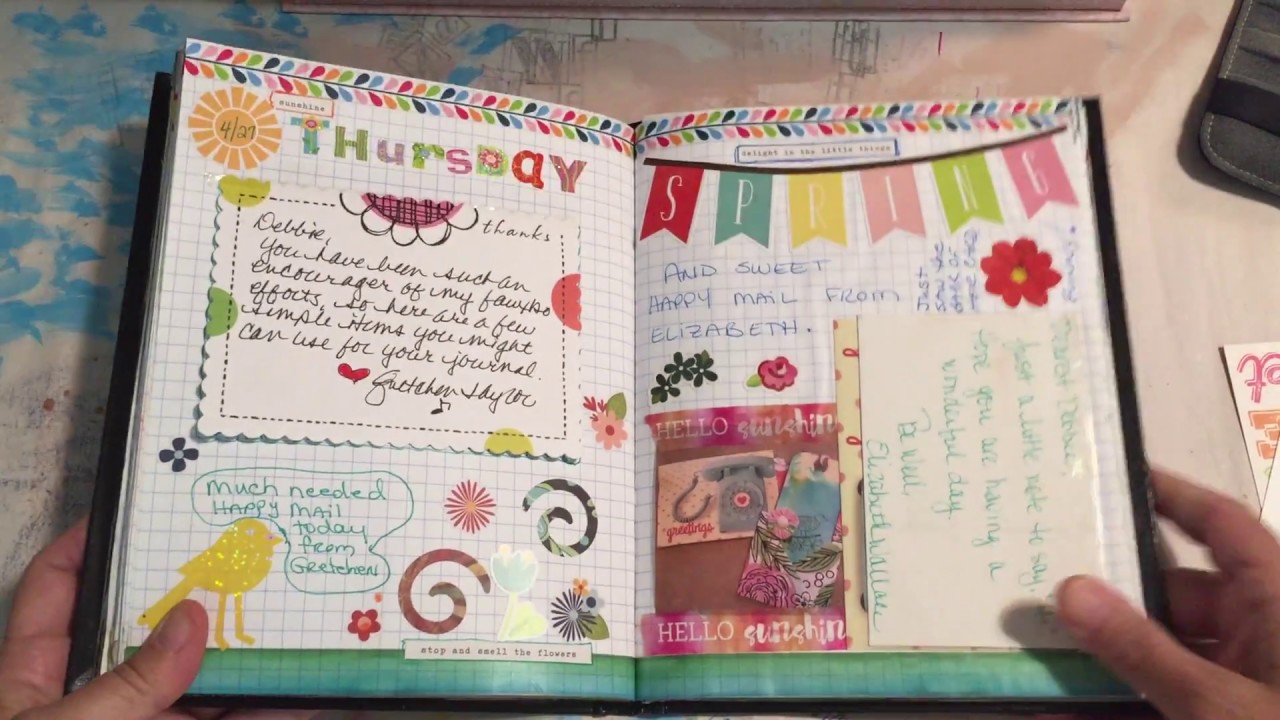 sunshine
4/27
THURSDAY
thanks
Debbie,
you have been such an
encourager of my
efforts, so here are a few
simple items you might
can use for your journal.
Gretchen
Much needed
HAPPY MAIL
today
from
Gretchen
stop and smell the flowers
delight in the little things
SPRING
AND SWEET
HAPPY MAIL FROM
ELIZABETH.
Just
saw the
HELLO sunshin
greetings
HELLO sunshin
Dearest Debbie,
Just a little note to say
you are having a
wonderful day.
Be well,
Elizabeth